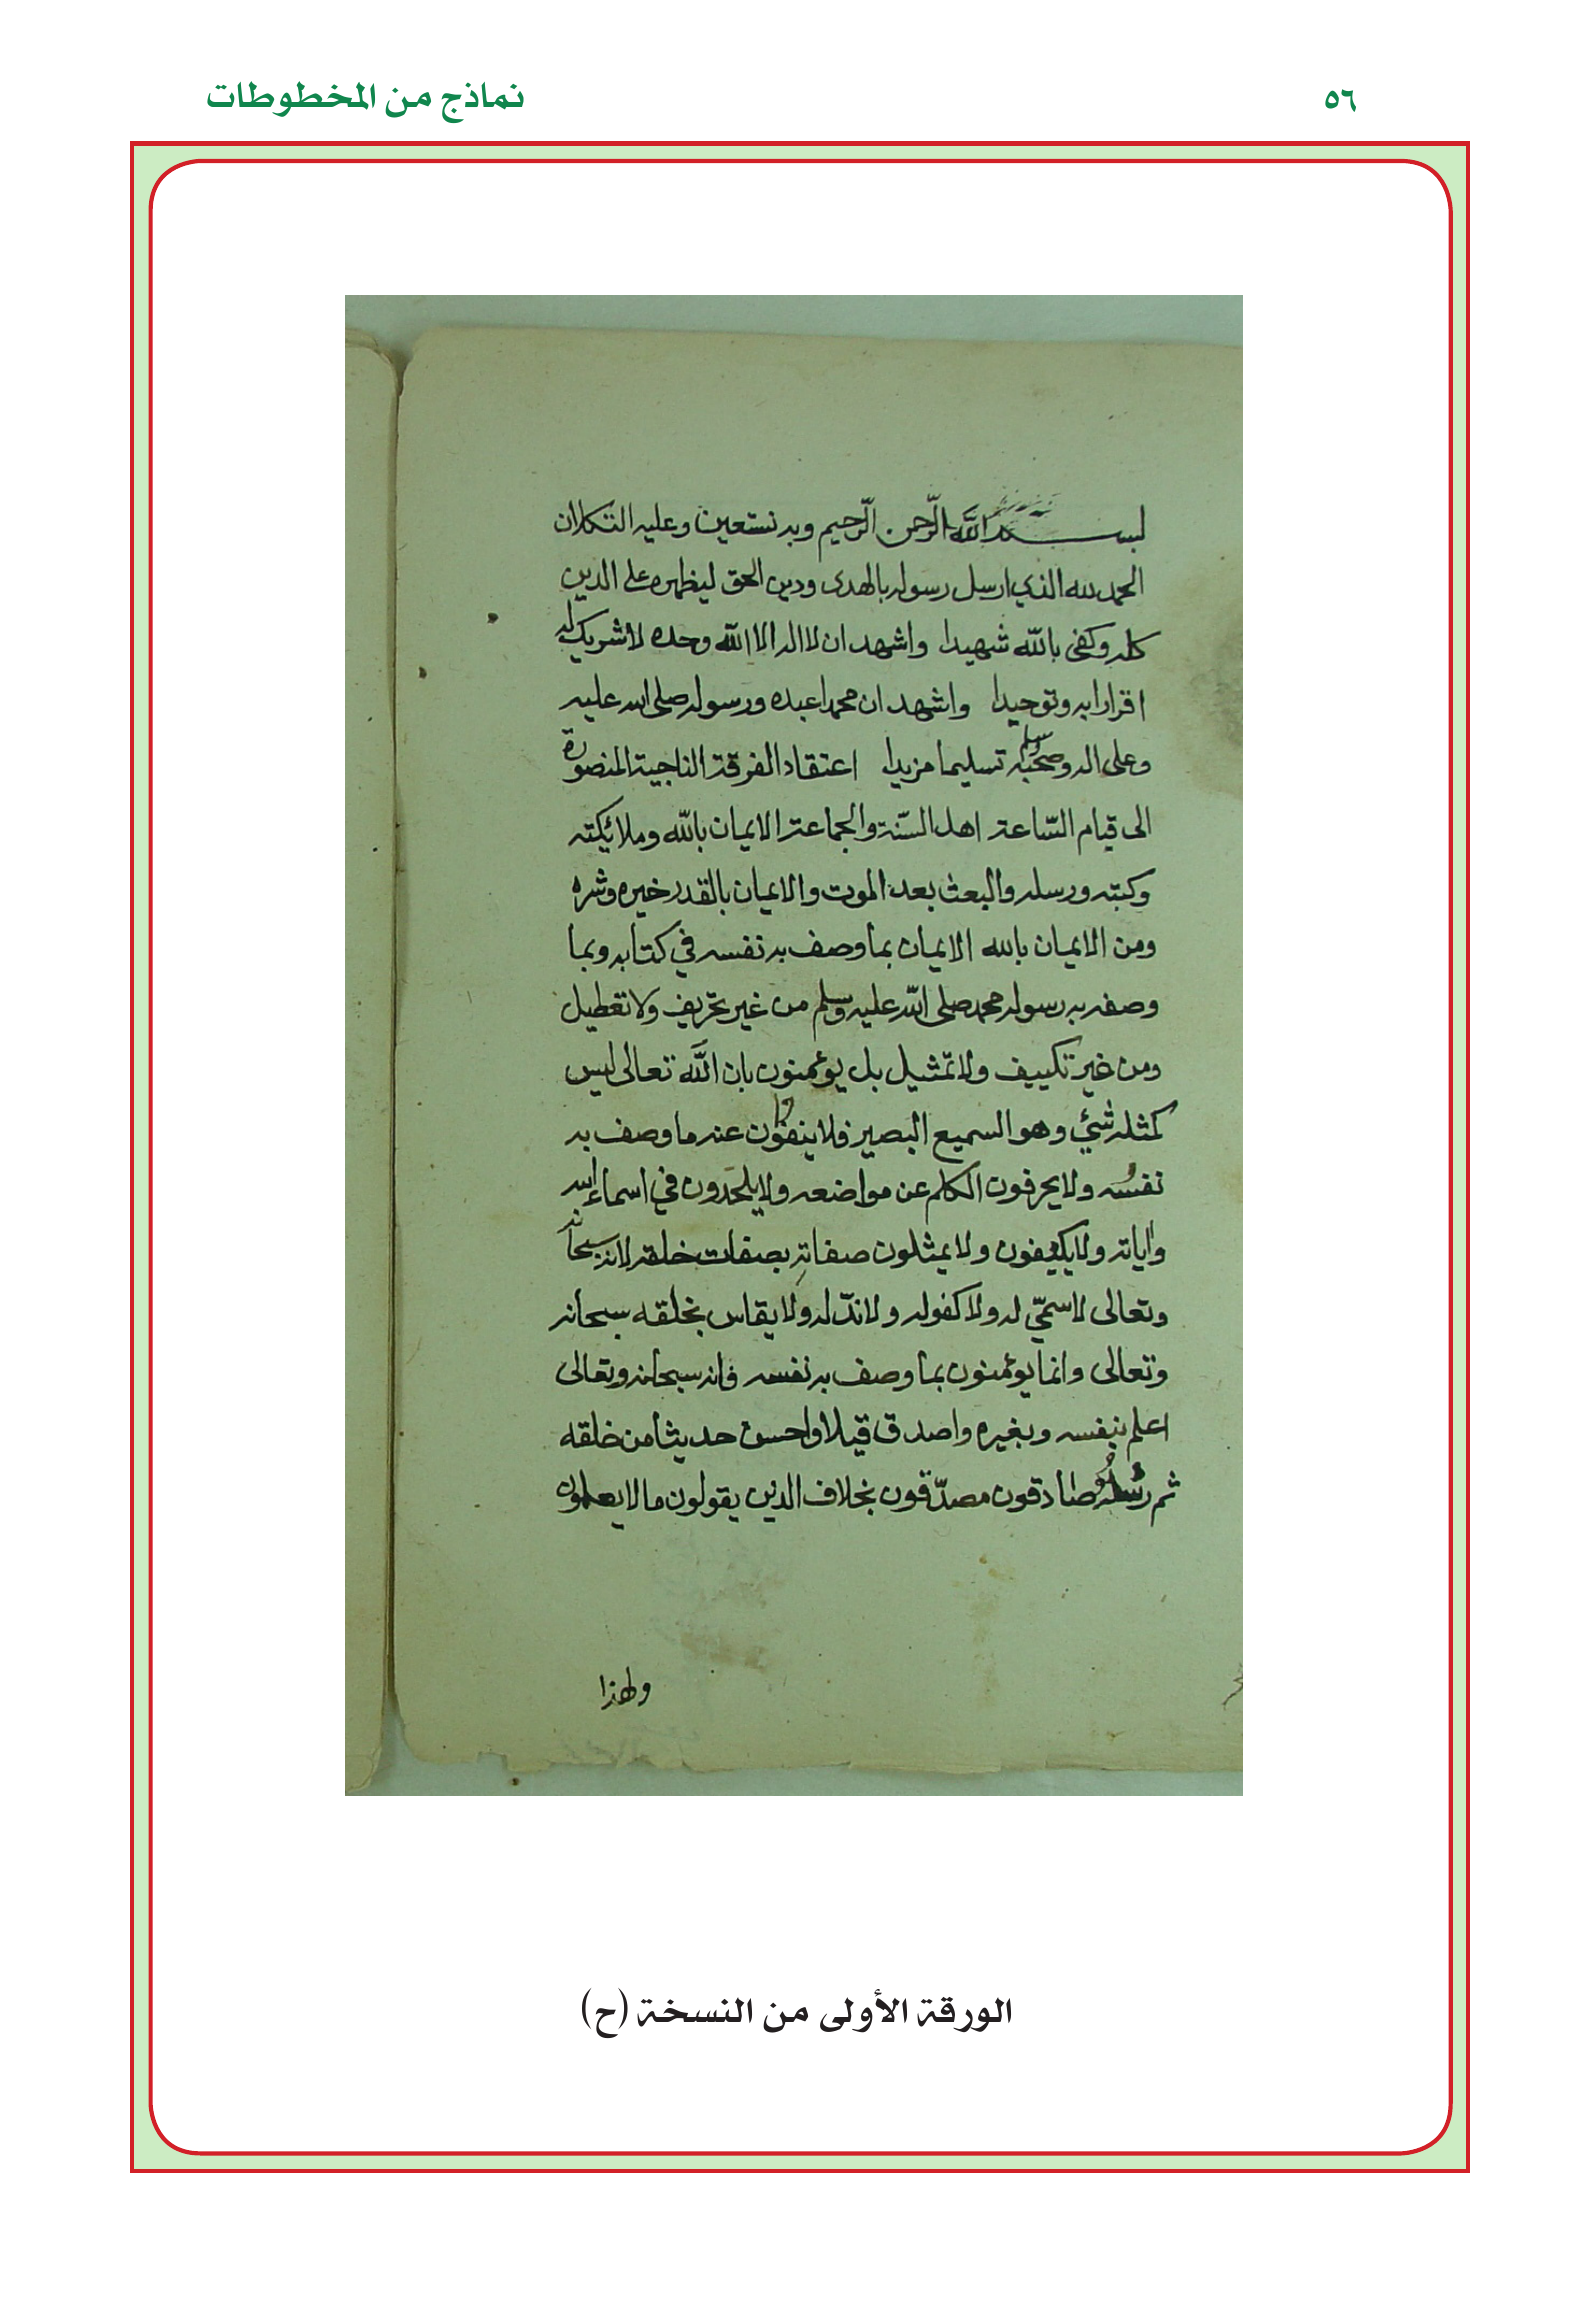 ٥٦
نماذج من المخطوطات
بسم الله الرّحمن الرّحيم وبه نستعين وعليه التكلان
الحمد لله الذي ارسل رسوله بالهدى ودين الحق ليظهره على الدين
كله وكفى بالله شهيدا واشهد ان لا اله الا الله وحده لا شريك له
اقرارا به وتوحيدا واشهد ان محمدا عبده ورسوله صلى الله عليه
وعلى اله وصحبه وسلم تسليما مزيدا اعتقاد الفرقة الناجية المنصورة
الى قيام السّاعة اهل السّنة والجماعة الايمان بالله وملائكته
وكتبه ورسله والبعث بعد الموت والايمان بالقدر خيره وشره
ومن الايمان بالله الايمان بما وصف به نفسه في كتابه وبما
وصفه به رسوله محمد صلى الله عليه وسلم من غير تحريف ولا تعطيل
ومن غير تكييف ولا تمثيل بل يؤمنون بان الله تعالى ليس
كمثله شيء وهو السميع البصير فلا ينفون عنه ما وصف به
نفسه ولا يحرفون الكلم عن مواضعه ولا يلحدون في اسماء الله
واياته ولا يكيفون ولا يمثلون صفاته بصفات خلقه لانه سبحانه
وتعالى لا سميّ له ولا كفو له ولا ندّ له ولا يقاس بخلقه سبحانه
وتعالى وانما يؤمنون بما وصف به نفسه فانه سبحانه وتعالى
اعلم بنفسه وبغيره واصدق قيلا واحسن حديثا من خلقه
ثم رسله صادقون مصدّقون بخلاف الذين يقولون ما لا يعلمون
ولهذا
الورقة الأولى من النسخة (ح)